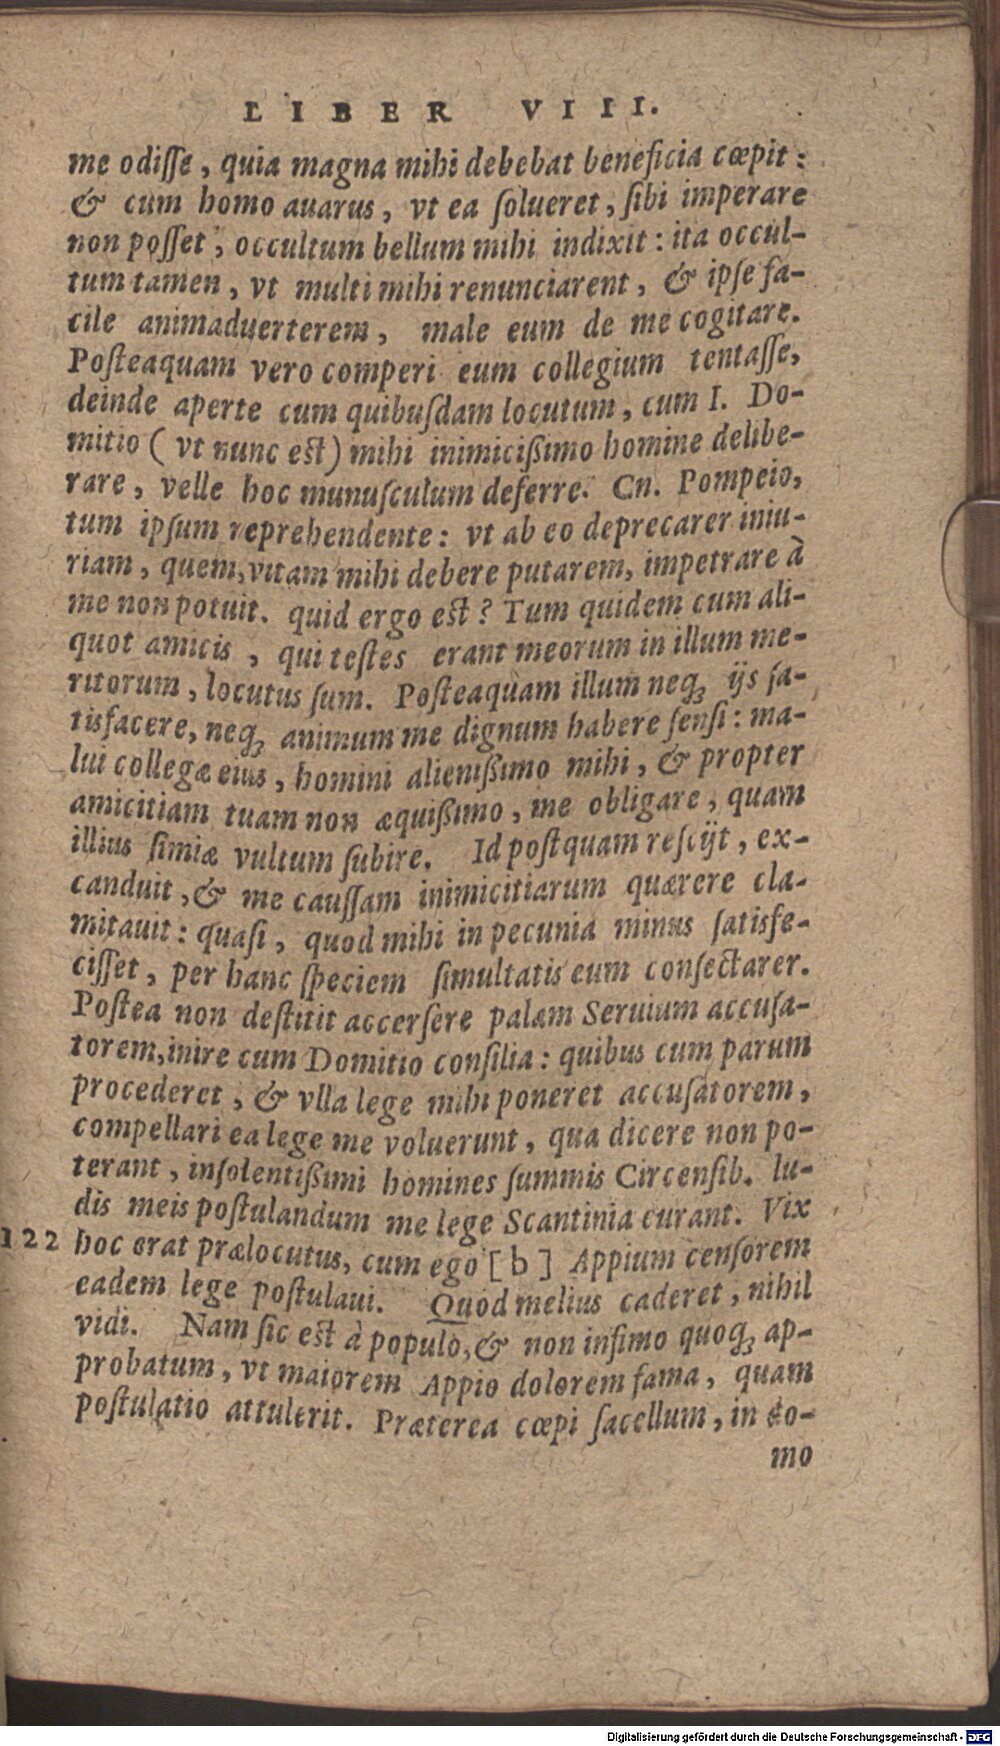 LIBER VIII.
me odiſſe, quia magna mihi debebat beneficia cœpit:
& cum homo auarus, vt ea ſolueret, ſibi imperare
non poſſet, occultum bellum mihi indixit: ita occul-
tum tamen, vt multi mihi renunciarent, & ipſe fa-
cile animaduerterem, male eum de me cogitare.
Poſteaquam vero comperi eum collegium tentaſſe,
deinde aperte cum quibuſdam locutum, cum I. Do-
mitio (vt nunc eſt) mihi inimicißimo homine delibe-
rare, velle hoc munuſculum deferre. Cn. Pompeio,
tum ipſum reprehendente: vt ab eo deprecarer iniu-
riam, quem, vitam mihi debere putarem, impetrare à
me non potuit. quid ergo eſt? Tum quidem cum ali-
quot amicis, qui teſtes erant meorum in illum me-
ritorum, locutus ſum. Poſteaquam illum neqꝫ ijs ſa-
tisfacere, neqꝫ animum me dignum habere ſenſi: ma-
lui collegæ eius, homini alienißimo mihi, & propter
amicitiam tuam non æquißimo, me obligare, quam
illius ſimiæ vultum ſubire. Id poſtquam reſcijt, ex-
canduit, & me cauſſam inimicitiarum quærere cla-
mitauit: quaſi, quod mihi in pecunia minus ſatisfe-
ciſſet, per hanc ſpeciem ſimultatis eum conſectarer.
Poſtea non deſtitit accerſere palam Seruium accuſa-
torem, inire cum Domitio conſilia: quibus cum parum
procederet, & vlla lege mihi poneret accuſatorem,
compellari ea lege me voluerunt, qua dicere non po-
terant, inſolentißimi homines ſummis Circenſib. lu-
dis meis poſtulandum me lege Scantinia curant. Vix
122 hoc erat prælocutus, cum ego [b] Appium cenſorem
eadem lege poſtulaui. Quod melius caderet, nihil
vidi. Nam ſic eſt à populo, & non infimo quoqꝫ ap-
probatum, vt maiorem Appio dolorem fama, quam
poſtulatio attulerit. Præterea cœpi ſacellum, in do-
mo
Digitalisierung gefördert durch die Deutsche Forschungsgemeinschaft - DFG